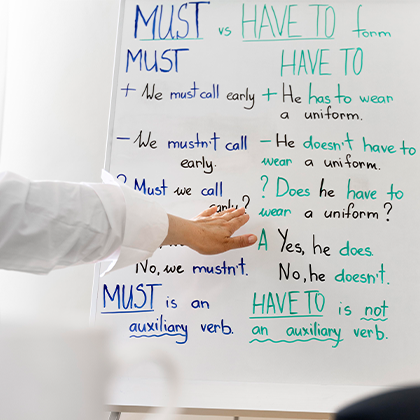 MUST vs HAVE TO form
MUST
+ We must call early
− We mustn't call
early.
? Must we call
early?
No, we mustn't.
MUST is an
auxiliary verb.
HAVE TO
+ He has to wear
a uniform.
− He doesn't have to
wear a uniform.
? Does he have to
wear a uniform?
A Yes, he does.
No, he doesn't.
HAVE TO is not
an auxiliary verb.